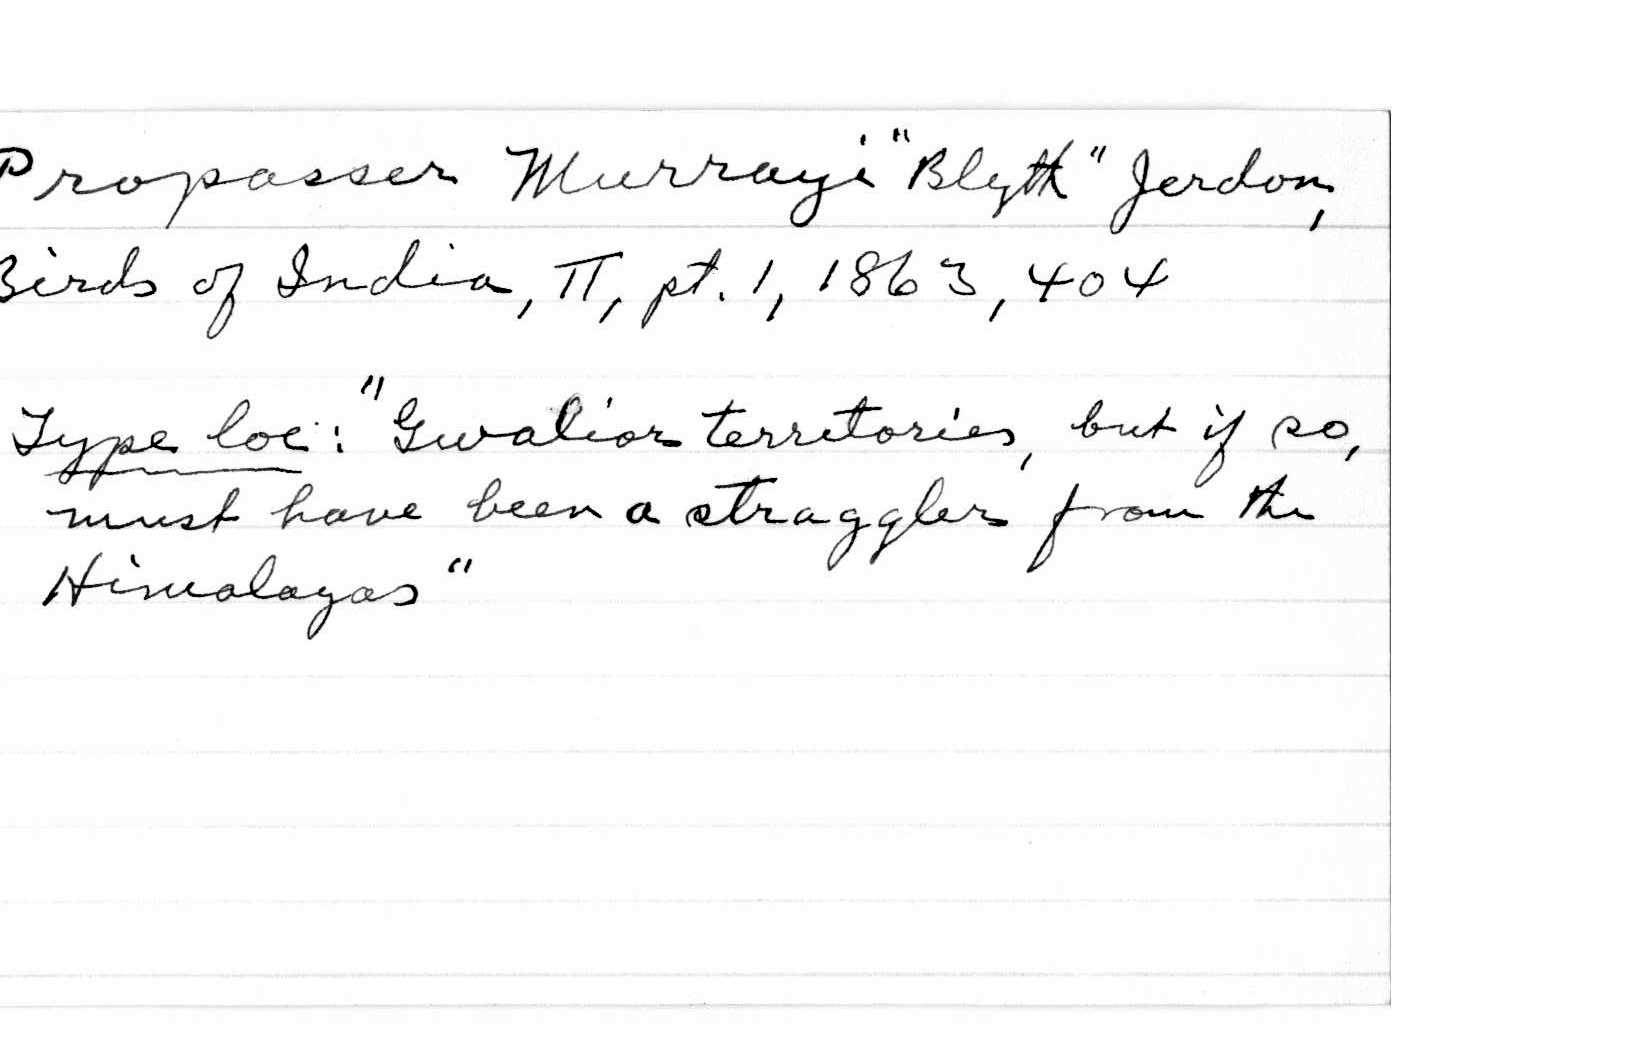 Propasser Murrayi "Blyth" Jerdon,
Birds of India, II, pt. 1, 1863, 404
Type loc.: "Gwalior territories, but if so,
must have been a straggler from the
Himalayas"